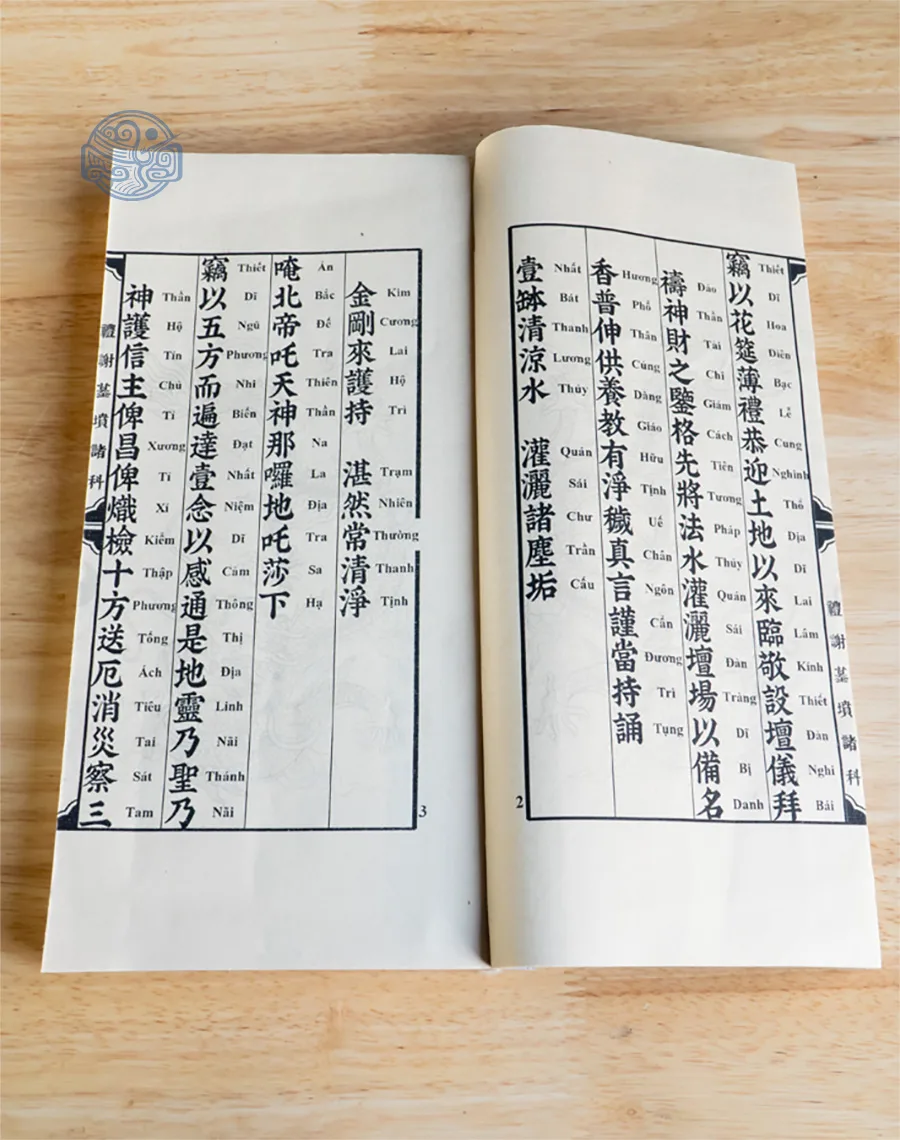 禮謝墓墳諸科
竊以花筵薄禮恭迎土地以來臨敬設壇儀拜
Thiết Dĩ Hoa Diên Bạc Lễ Cung Nghinh Thổ Địa Dĩ Lai Lâm Kính Thiết Đàn Nghi Bái
禱神財之鑒格先將法水灌灑壇場以備名
Đảo Thần Tài Chi Giám Cách Tiên Tương Pháp Thủy Quán Sái Đàn Tràng Dĩ Bị Danh
香普伸供養教有淨穢真言謹當持誦
Hương Phổ Thân Cúng Dàng Giáo Hữu Tịnh Uế Chân Ngôn Cẩn Đương Trì Tụng
壹缽清涼水 灌灑諸塵垢
Nhất Bát Thanh Lương Thủy Quán Sái Chư Trần Cấu
2
金剛來護持 湛然常清淨
Kim Cương Lai Hộ Trì Trạm Nhiên Thường Thanh Tịnh
唵北帝吒天神那囉地吒莎下
Án Bắc Đế Tra Thiên Thần Na La Địa Tra Sa Hạ
竊以五方而遍達壹念以感通是地靈乃聖乃
Thiết Dĩ Ngũ Phương Nhi Biến Đạt Nhất Niệm Dĩ Cảm Thông Thị Địa Linh Nãi Thánh Nãi
神護信主俾昌俾熾檢十方送厄消災察三
Thần Hộ Tín Chủ Tỉ Xương Tỉ Xí Kiểm Thập Phương Tống Ách Tiêu Tai Sát Tam
禮謝墓墳諸科
3